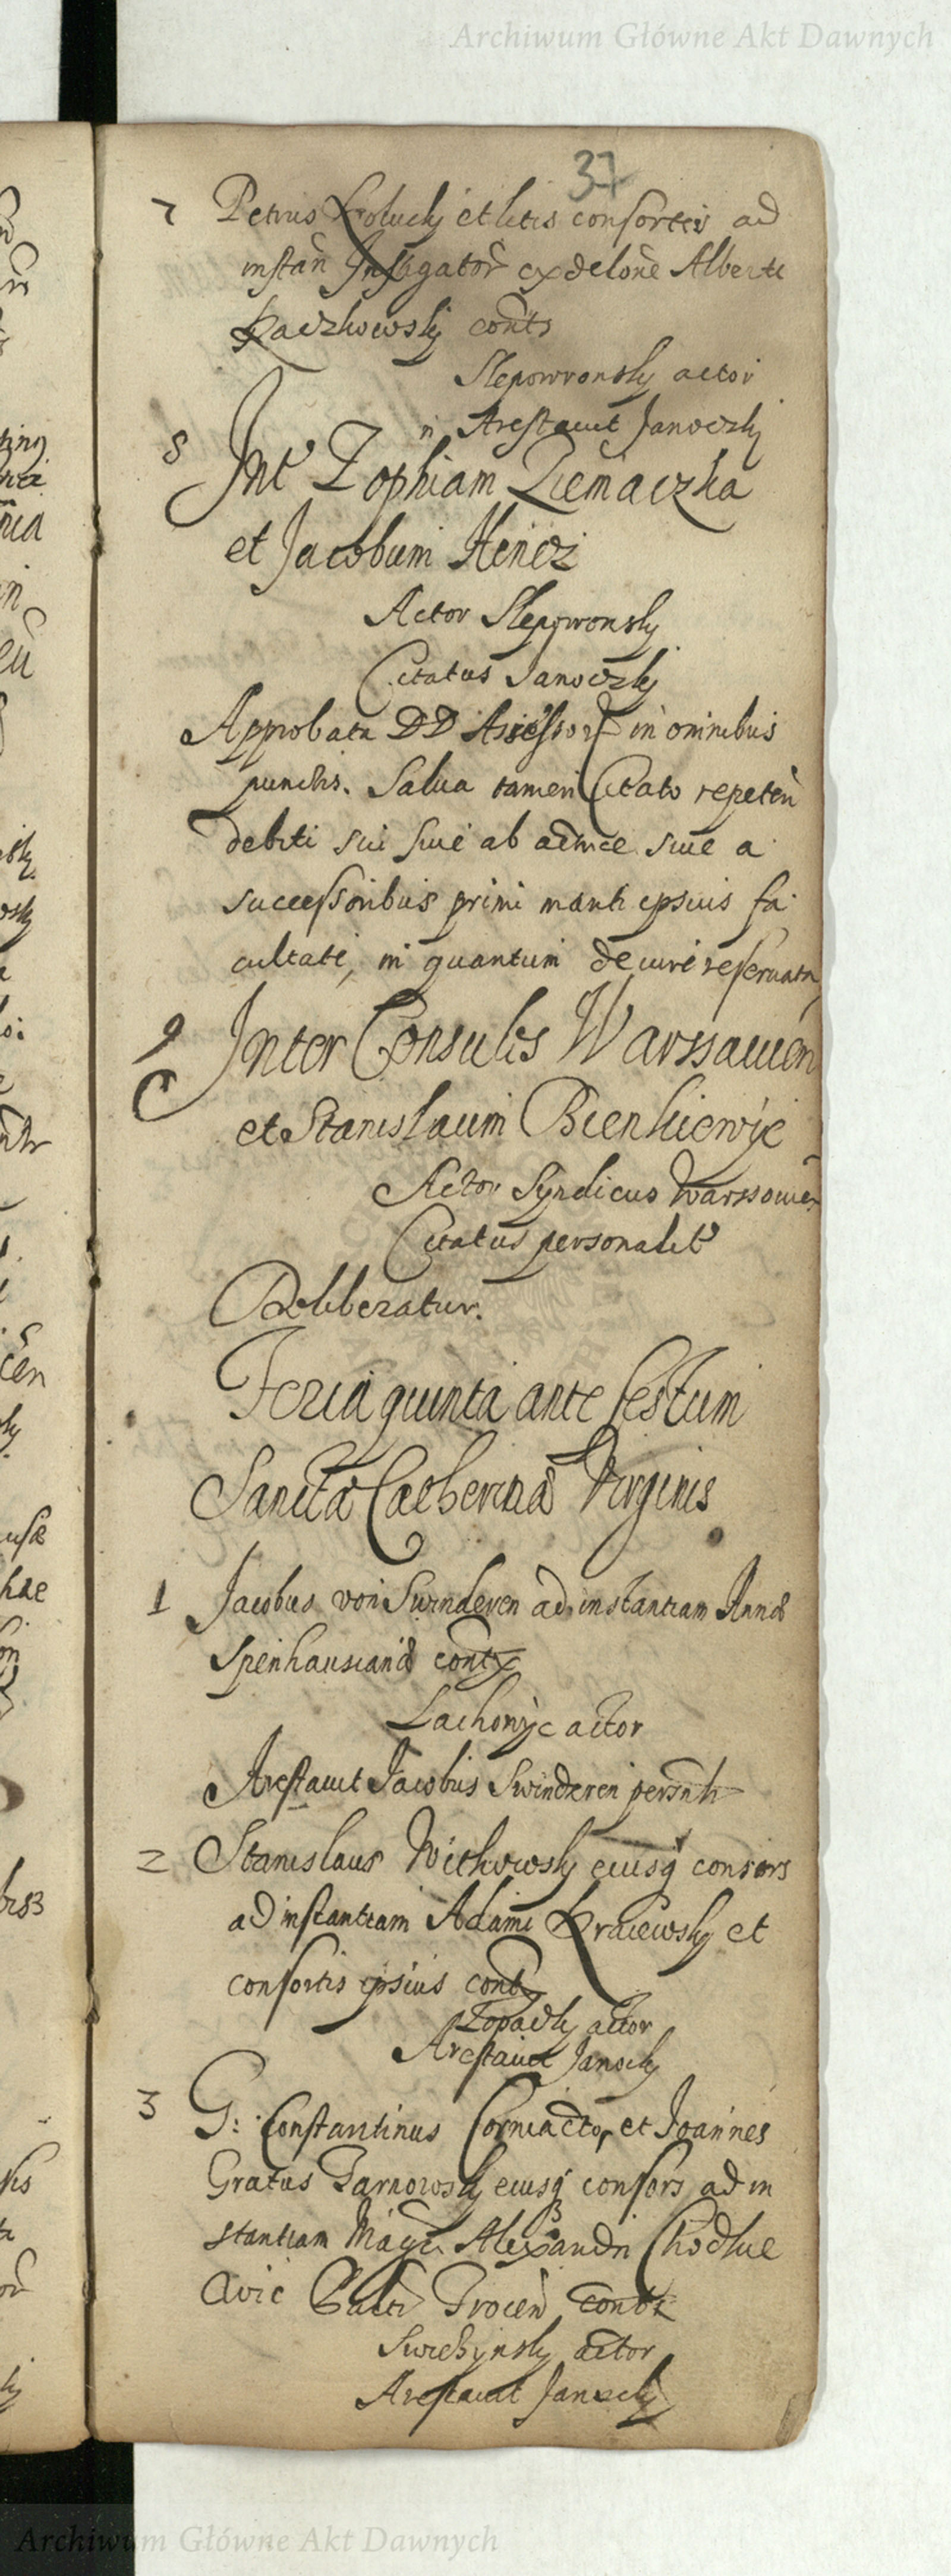 Archiwum Główne Akt Dawnych
37
7 Petrus et litis consortes ad
instan Instigator ex delone Alberti
Raczkowsky conts
Slepowronsky actor
n Arestavit Janoczky
8 Int Zophiam Ziemaczka
et Jacobum Hencz
Actor Slepowronsky
Citatus Janoczky
Approbata DD Assessor in omnibus
punctis. Salua tamen Citato repeten
debiti sui siue ab actrice siue a
successoribus primi mariti ipsius fa
cultate, in quantum de iure reseruata
9 Inter Consules Warssauien
C et Stanislaum Bienkiewic
Actor Syndicus Warssouien
Citatus personalit
Deliberatur.
Feria quinta ante festum
Sancta Catherina Virginis
1 Jacobus von Swinderen ad instantiam Anna
Spenhausiana cont
Lachowic actor
Arestauit Jacobus Swinderen persnlr
2 Stanislaus Witkowsky eiusq consors
ad instantiam Adami Kraiewsky et
consortis ipsius cont
Zopacky actor
Arestauit Janocky
3 G: Constantinus Corniacto, et Joannes
Gratus Tarnowsky eiusq consors ad in
stantiam Magci Alexandri Chodkie
Trocen cont
actor
Arestauit Janocky
Archiwum Główne Akt Dawnych